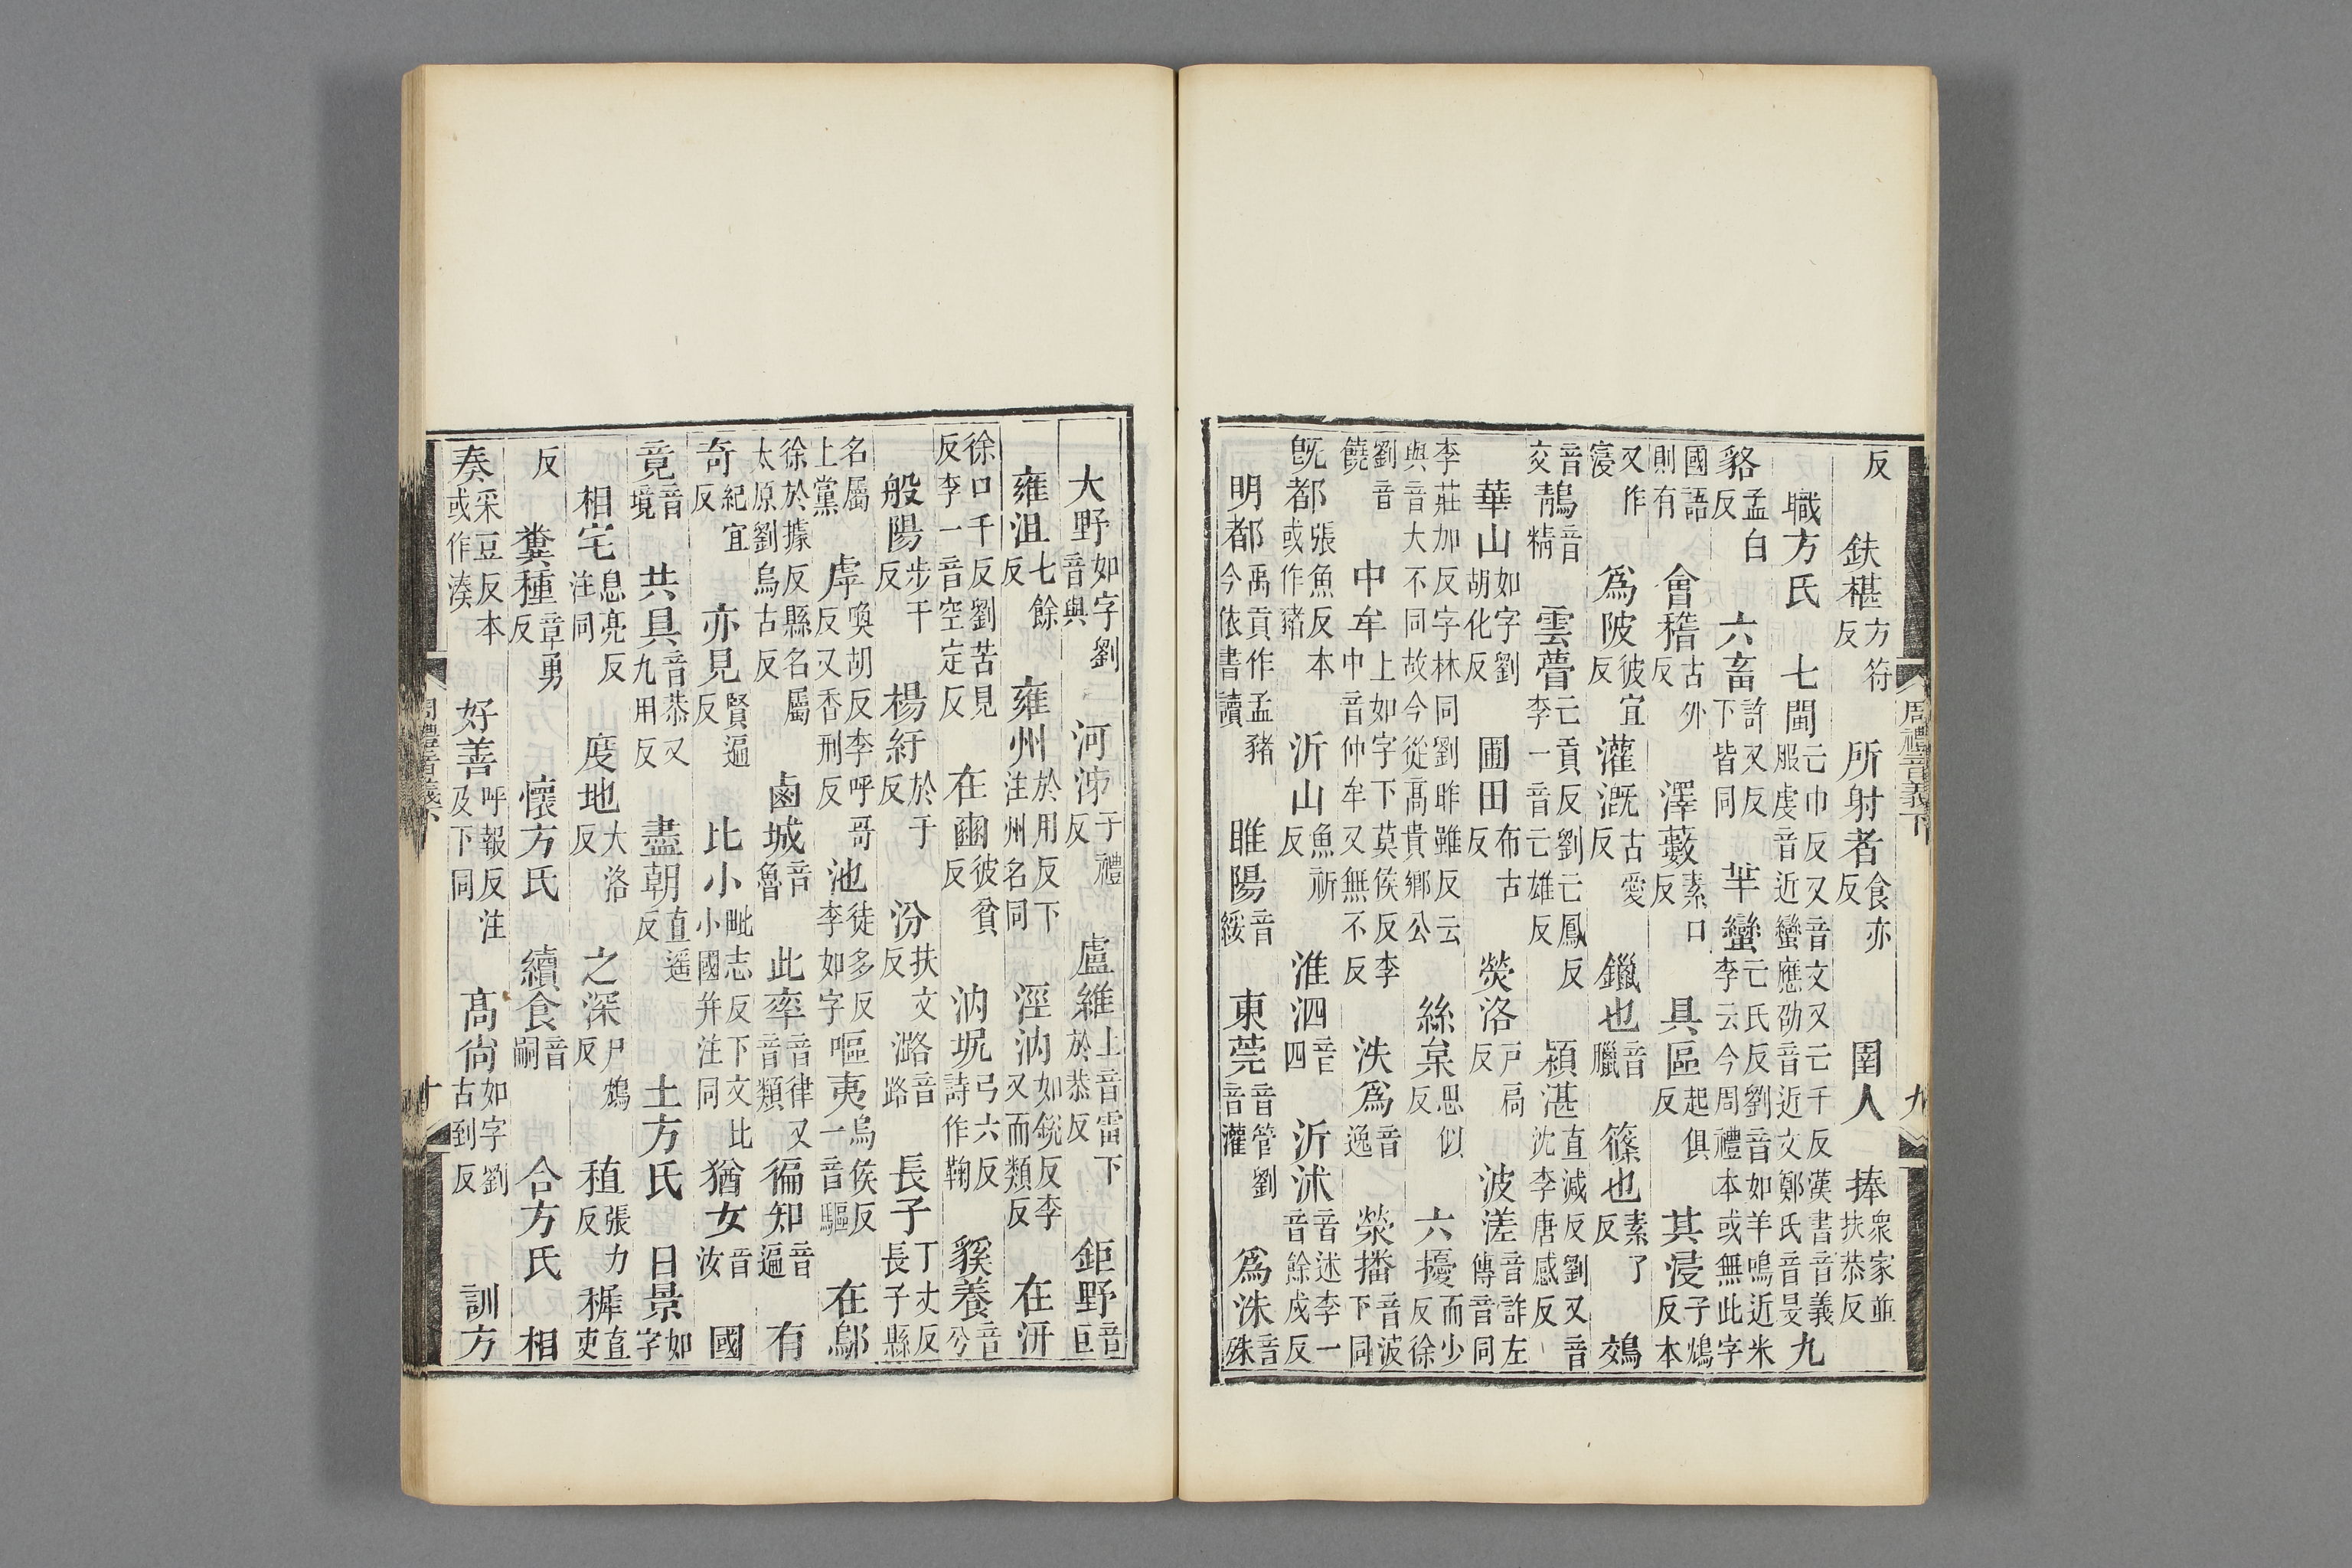 周禮音義下 九
反 鈇椹方符反 所射者食亦反 圉人 捧衆家並扶恭反
職方氏 七閩亡巾反又音文又亡千反漢書音義服虔音近蠻應劭音近文鄭氏音旻 九
貉孟白反 六畜許又反下皆同 芈蠻亡氏反劉音如羊鳴近米李云今周禮本或無此字
國語則有 會稽古外反 澤藪素口反 具區起俱反 其浸子鴆反本
又作寖 爲陂彼宜反 灌漑古愛反 鑞也音臘 篠也素了反 鵁
音交 鶄音精 雲瞢亡貢反劉亡鳳反李一音亡雄反 潁湛直減反劉又音沈李唐感反
華山如字劉胡化反 圃田布古反 熒洛戸扃反 波溠音詐左傳音同
李莊加反字林同劉昨雖反云與音大不同故今從髙貴鄉公 絲枲思似反 六擾而少反徐
劉音饒 中牟上如字下莫侯反李中音仲牟又無不反 泆爲音逸 滎播音波下同
旣都張魚反本或作豬 沂山魚祈反 淮泗音四 沂沭音述李一音餘戍反
明都禹貢作孟豬今依書讀 睢陽音綏 東莞音管劉音灌 爲洙音殊
大野如字劉音與 河泲于禮反 盧維上音雷下於恭反 鉅野音巨
雍沮七餘反 雍州於用反下注州名同 涇汭如銳反李又而類反 在汧
徐口千反劉苦見反李一音空定反 在豳彼貧反 汭坭弓六反詩作鞫 貕養音公
般陽步干反 楊紆於于反 汾扶文反 潞音路 長子丁丈反長子縣
名屬上黨 虖喚胡反李呼哥反又香刑反 池徒多反李如字 嘔夷烏侯反一音驅 在鄔
徐於據反縣名屬太原劉烏古反 鹵城音魯 此率音律又音類 徧知音遍 有
奇紀宜反 亦見賢遍反 比小毗志反下文比小國并注同 猶女音汝 國
竟音境 共具音恭又九用反 盡朝直遥反 土方氏 日景如字
相宅息亮反注同 度地大洛反 之深尸鴆反 稙張力反 稺直吏
反 糞種章勇反 懷方氏 續食音嗣 合方氏 相
奏采豆反本或作湊 好善呼報反注及下同 髙尙如字劉古到反 訓方